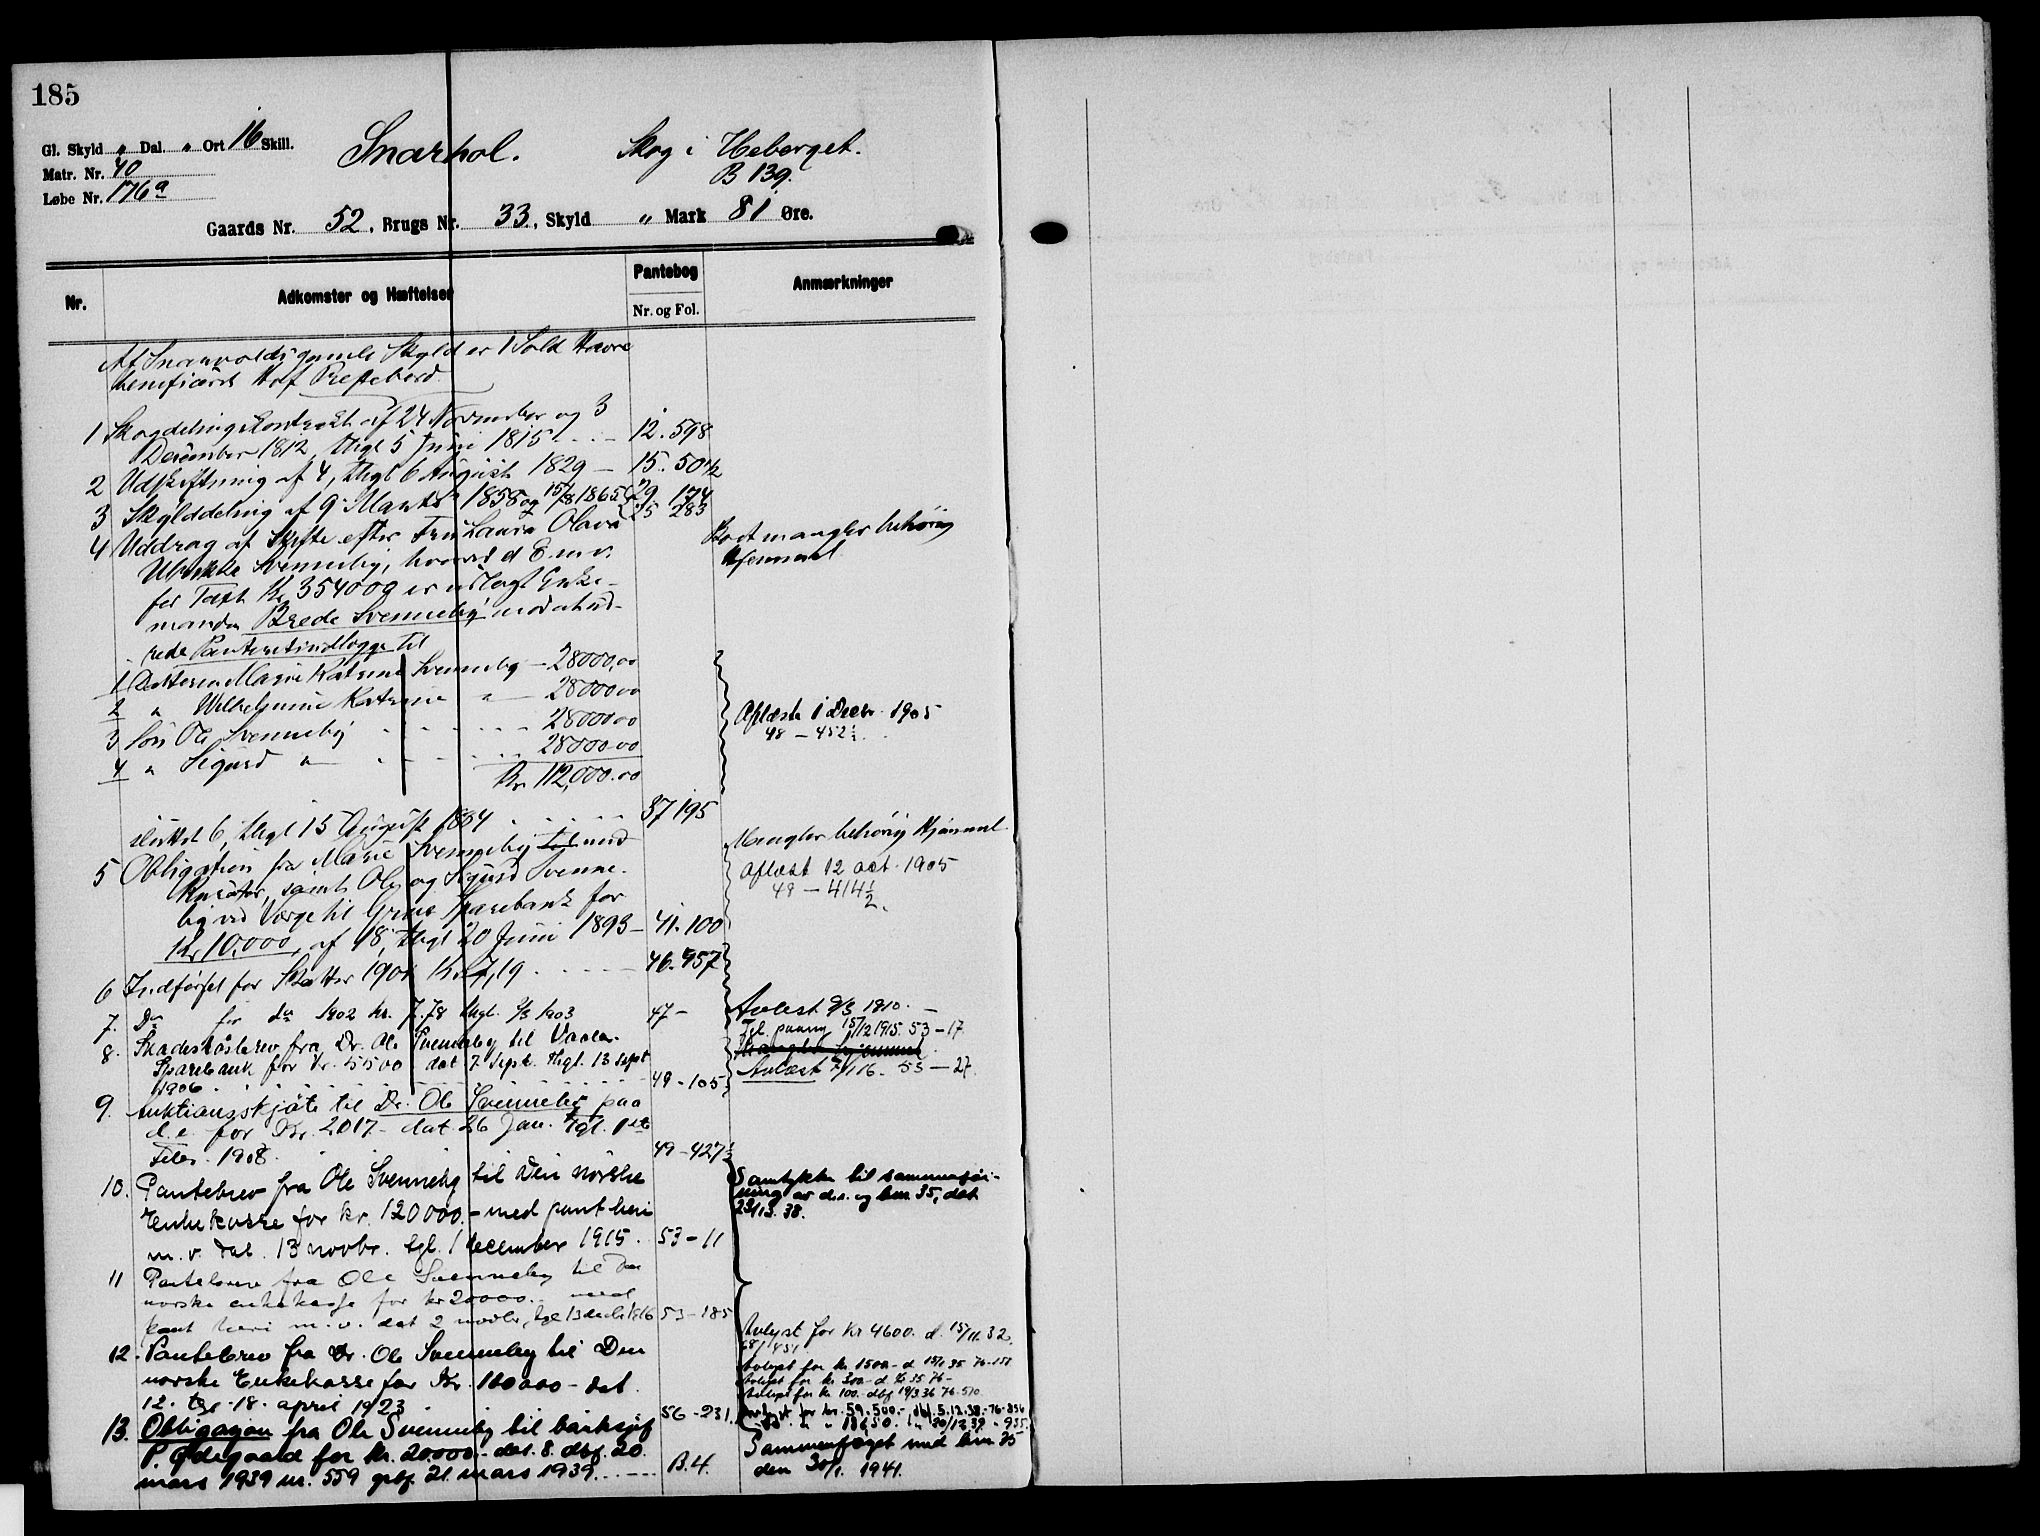 185
Gl. Skyld " Dal. " Ort 16 Skill.
Matr. Nr. 40
Løbe Nr. 176a
Snarhol. Skog i Heberget.
B 139.
Gaards Nr. 52, Brugs Nr. 33, Skyld " Mark 81 Øre.
Nr. Adkomster og Hæftelser Pantebog Nr. og Fol. Anmærkninger
Af Snarvolds gamle Skyld er 1 Sold Havre
beneficeret Hof Prestebord.
1 Skogdelingskontrakt af 24 November og 3
December 1812, thgl 5 Juni 1815 12. 598
2 Udskiftning af 4, thgl 6 August 1829 — 15. 504½
3 Skylddeling af 9 Marts 1858 og 15/8 1865 29. 174
25 283
4 Uddrag af Skifte efter Fru Laura Olava
Svenneby, hvorved d. E. m.v.
for Taxt Kr 354000 er udlagt Enke-
manden Brede Svenneby mod at ud-
rede Panteretindlogge til
Kort mangler behørig
Hjemmel
1 Datteren Marie Katrine Svenneby — 28000,00
2 " Wilhelmine Katrine " — 28000 00
3 Søn Ole Svenneby 28000 00
4 " Sigurd " 28000 00
Kr 112,000.00
Aflæst 1 Decbr. 1905
48 — 452½
sluttet 6, thgl 15 August 1884 37 195
5 Obligation fra Marie Svenneby med
Kurator, samt Ole og Sigurd Svenne-
by ved Værge til Grue Sparebank for
Kr 10,000, af 18, thgl 20 Juni 1893 — 41. 100
Mangler behørig Hjemmel
Aflæst 12 oct. 1905
49 — 414½.
6 Indførsel for Skatter 1901 Kr 7,19 46. 957
7. Do for do 1902 kr. 7.78 thgl. 3/3 1903 47 —
Avlæst 9/3 1910. —
8. Skadesløsbrev fra Dr. Ole Svenneby til Vaaler
Sparebank for Kr. 5500 dat 7 Sept. thgl. 13 sept
1906 49 - 105
Tgl. paany 15/12 1915. 53 — 17
Mangler hjemmel.
Avlæst 7/1 16. 53 — 27.
9. Auktionsskjøte til Dr. Ole Svenneby paa
d. e. for Kr. 2017 — dat. 26 Jan. tgl. 1ste
Febr. 1908. 49 - 427½
10. Pantebrev fra Ole Svenneby til Den norske
Enkekasse for kr. 120000.- med pant heri
m. v. dat. 13 novbr. tgl. 1 december 1915. 53 - 11
Samtykke til sammenføi-
ning av d.e. og bnr. 35, dat
23/12. 38.
11 Pantebrev fra Ole Svenneby til Den
norske enkekasse for kr 20000.- med
pant heri m. v. dat 2 novbr, tgl 13 decbr 1916 53 - 185
12. Pantebrev fra Dr. Ole Svenneby til Den
norske Enkekasse for Kr. 100000 - dat.
12. tgl. 18. april 1923 56 - 231.
Avlyst for kr 4600. d. 15/11. 32
68/1451
Avlyst for kr. 1500 - d. 15/1 35 76-151
Avlyst for kr. 300 - d. 35 76 -
Avlyst for kr. 100.- dbf. 19/3.36 76-510
Avlyst for kr. 59.500.- dbf. 5.12.38 - 76-856
do. " " 18650. " 20/12 39 - 935.
13. Obligasjon fra Ole Svenneby til banksjef
P. Ødegaard for kr. 20.000.- dat. 8. dbf. 20.
mars 1939 nr. 559 grbf. 21. mars 1939. B. 4.
Sammenføyet med bnr 35
den 30/1. 1941.